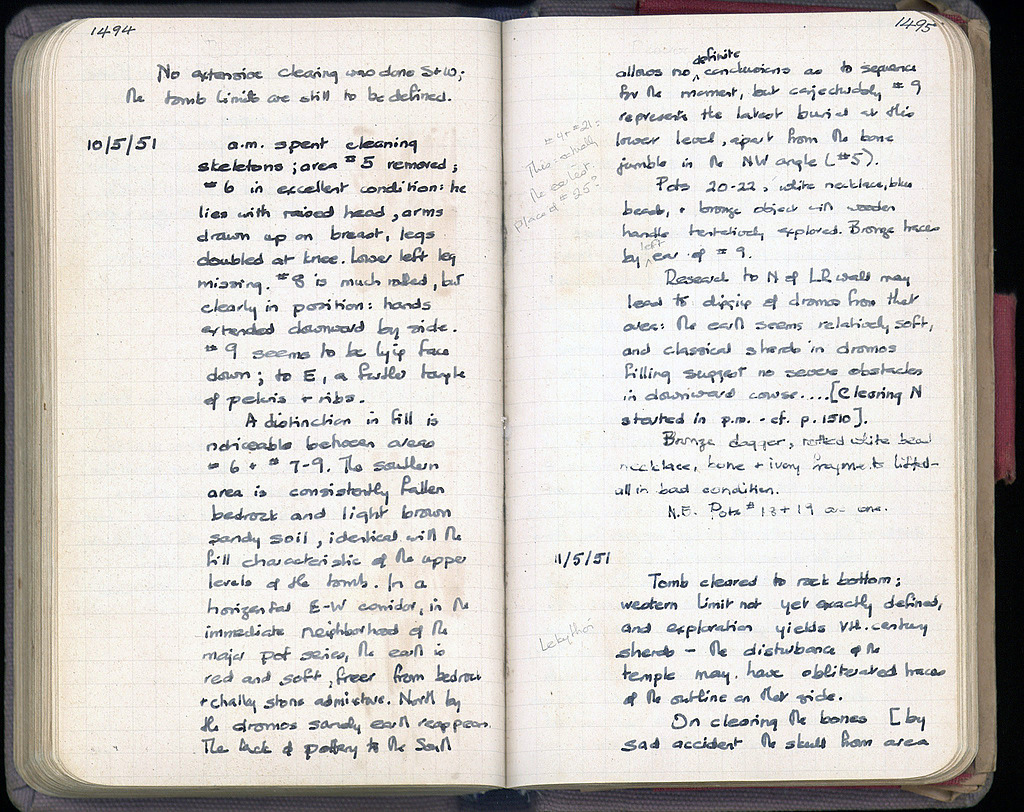 1494
No extensive clearing was done S+W;
the tomb limits are still to be defined.
10/5/51
a.m. spent cleaning
skeletons; area #5 removed;
#6 in excellent condition: he
lies with raised head, arms
drawn up on breast, legs
doubled at knee. Lower left leg
missing. #8 is much rolled, but
clearly in position: hands
extended downward by side.
#9 seems to be lying face
down; to E, a further tangle
of pelvis + ribs.
A distinction in fill is
noticeable between areas
#6 + #7-9. The southern
area is consistently fallen
bedrock and light brown
sandy soil, identical with the
fill characteristic of the upper
levels of the tomb. In a
horizontal E-W corridor, in the
immediate neighborhood of the
major pot series, the earth is
red and soft, freer from bedrock
+ chalky stone admixture. North by
the dromos sandy earth reappears.
The lack of pottery to the South
1495
allows no definite conclusions as to sequence
for the moment, but conjecturably #9
represents the latest burial at this
lower level, apart from the bone
jumble in the NW angle (#5).
#4+#21:
This actually
the earliest.
placed #25?
Pots 20-22, white necklace, blue
beads, + bronze object with wooden
handle tentatively explored. Bronze traces
by left ear of #9.
Research to N of LR walls may
lead to digging of dromos from that
area: the earth seems relatively soft,
and classical sherds in dromos
filling suggest no severe obstacles
in downward course....[Clearing N
started in p.m. - cf. p. 1510].
Bronze dagger, rotted white bead
necklace, bone + ivory fragments lifted -
all in bad condition.
N.B. Pots #18+19 are one.
11/5/51
Tomb cleared to rock bottom;
western limit not yet exactly defined,
and exploration yields VII. century
sherds - the disturbance of the
temple may have obliterated traces
of the outline on that side.
Lekythoi
On clearing the bones [by
sad accident the skull from area